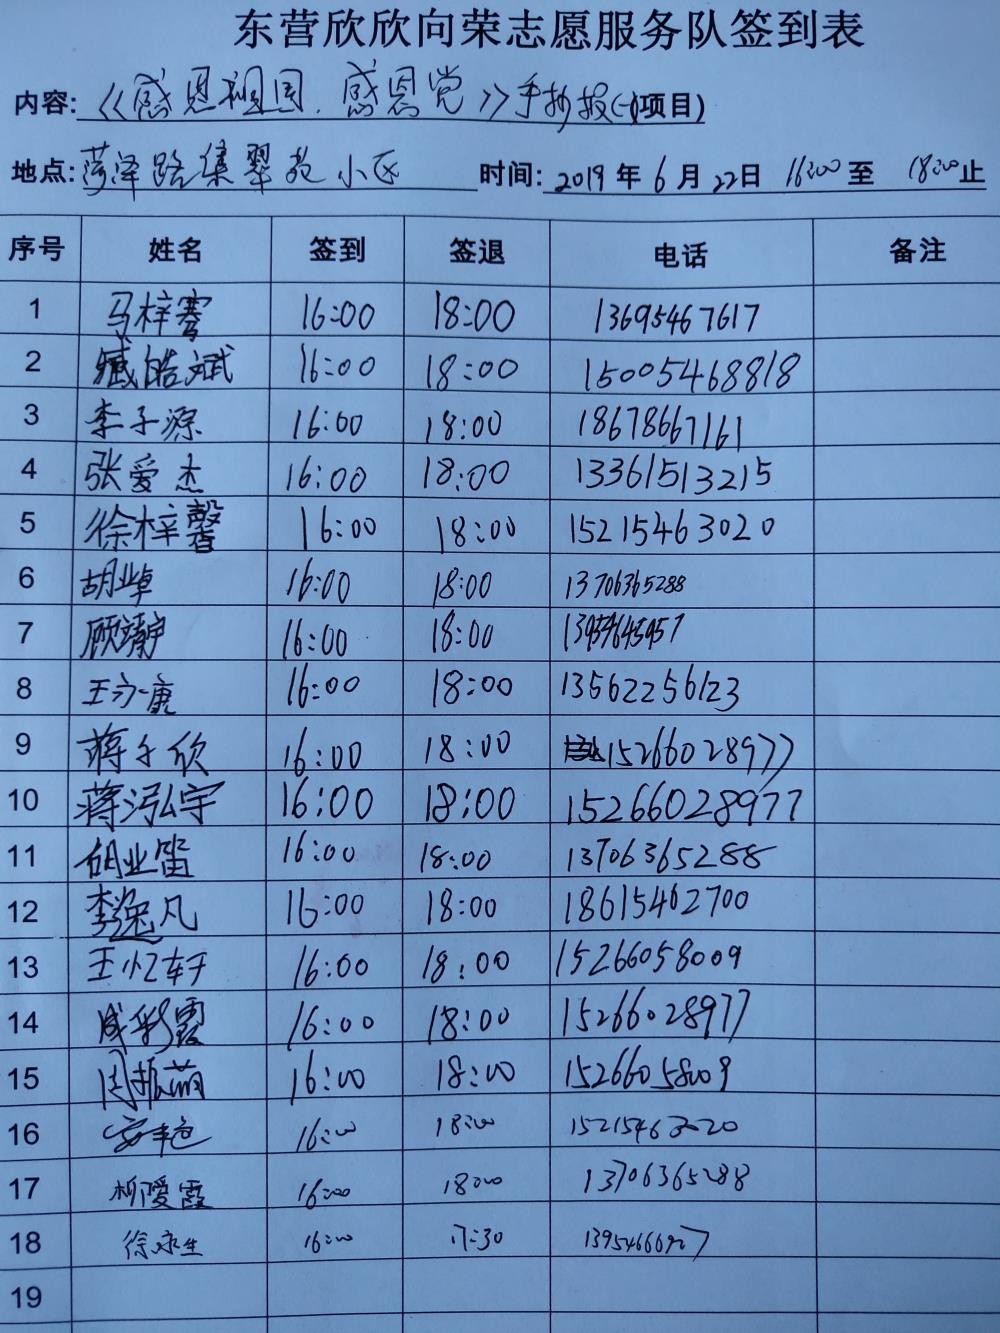 东营欣欣向荣志愿服务队签到表
内容:《感恩祖国.感恩党》手抄报(一)(项目)
地点:菏泽路集翠苑小区 时间:2019年6月22日 16:00至 18:00止
序号 姓名 签到 签退 电话 备注
1 马梓骞 16:00 18:00 13695467617
2 臧皓斌 16:00 18:00 15005468818
3 李子源 16:00 18:00 18678667161
4 张爱杰 16:00 18:00 13361513215
5 徐梓馨 16:00 18:00 15215463020
6 胡业卓 16:00 18:00 13706365288
7 顾靖宇 16:00 18:00
8 王亦康 16:00 18:00 13562256123
9 蒋子欣 16:00 18:00 15266028977
10 蒋泓宇 16:00 18:00 15266028977
11 胡业笛 16:00 18:00 13706365288
12 李逸凡 16:00 18:00 18615462700
13 王忆轩 16:00 18:00 15266058009
14 成彩霞 16:00 18:00 15266028977
15 周振萌 16:00 18:00 15266058009
16 16:00 18:00 15215463020
17 柳爱霞 16:00 18:00 13706365288
18 徐永生 16:00 17:30
19